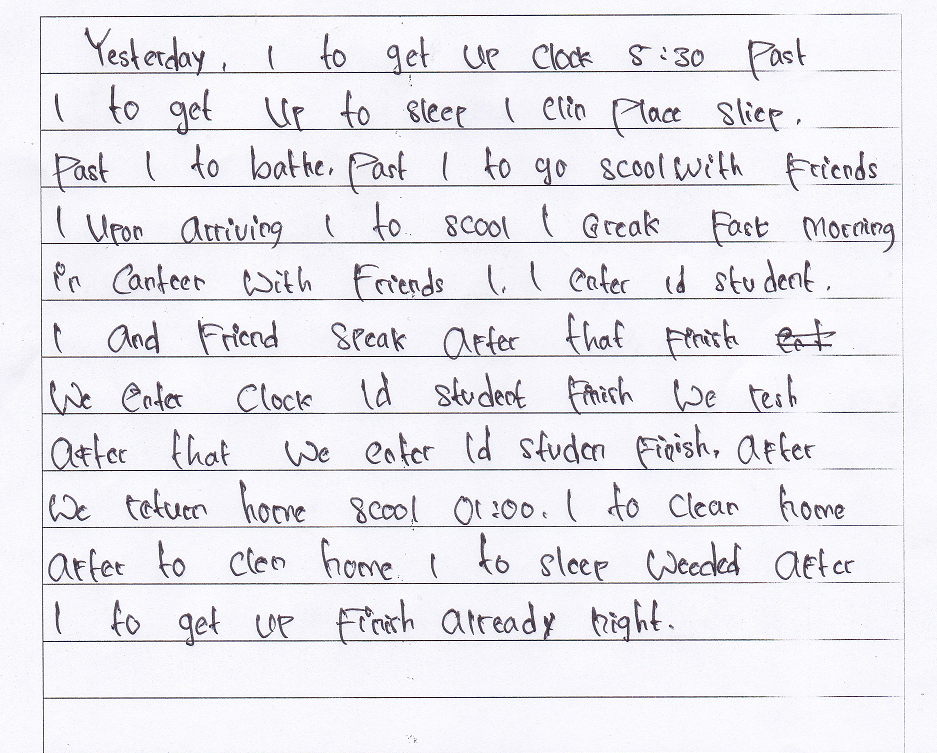 Yesterday, I to get up clock 5:30 Past
I to get up to sleep I clin Place sliep.
Past I to bathe. Past I to go scool with Friends
I upon arriving I to scool I Greak Fast Morning
in Canteer with Friends I. I enter id student.
I and Friend speak after that Finish eat
We enter clock Id student Finish we resh
After that we enter Id studen Finish. after
We return home scool 01:00. I to clean home
after to clen home I to sleep weeded after
I to get up Finish already night.